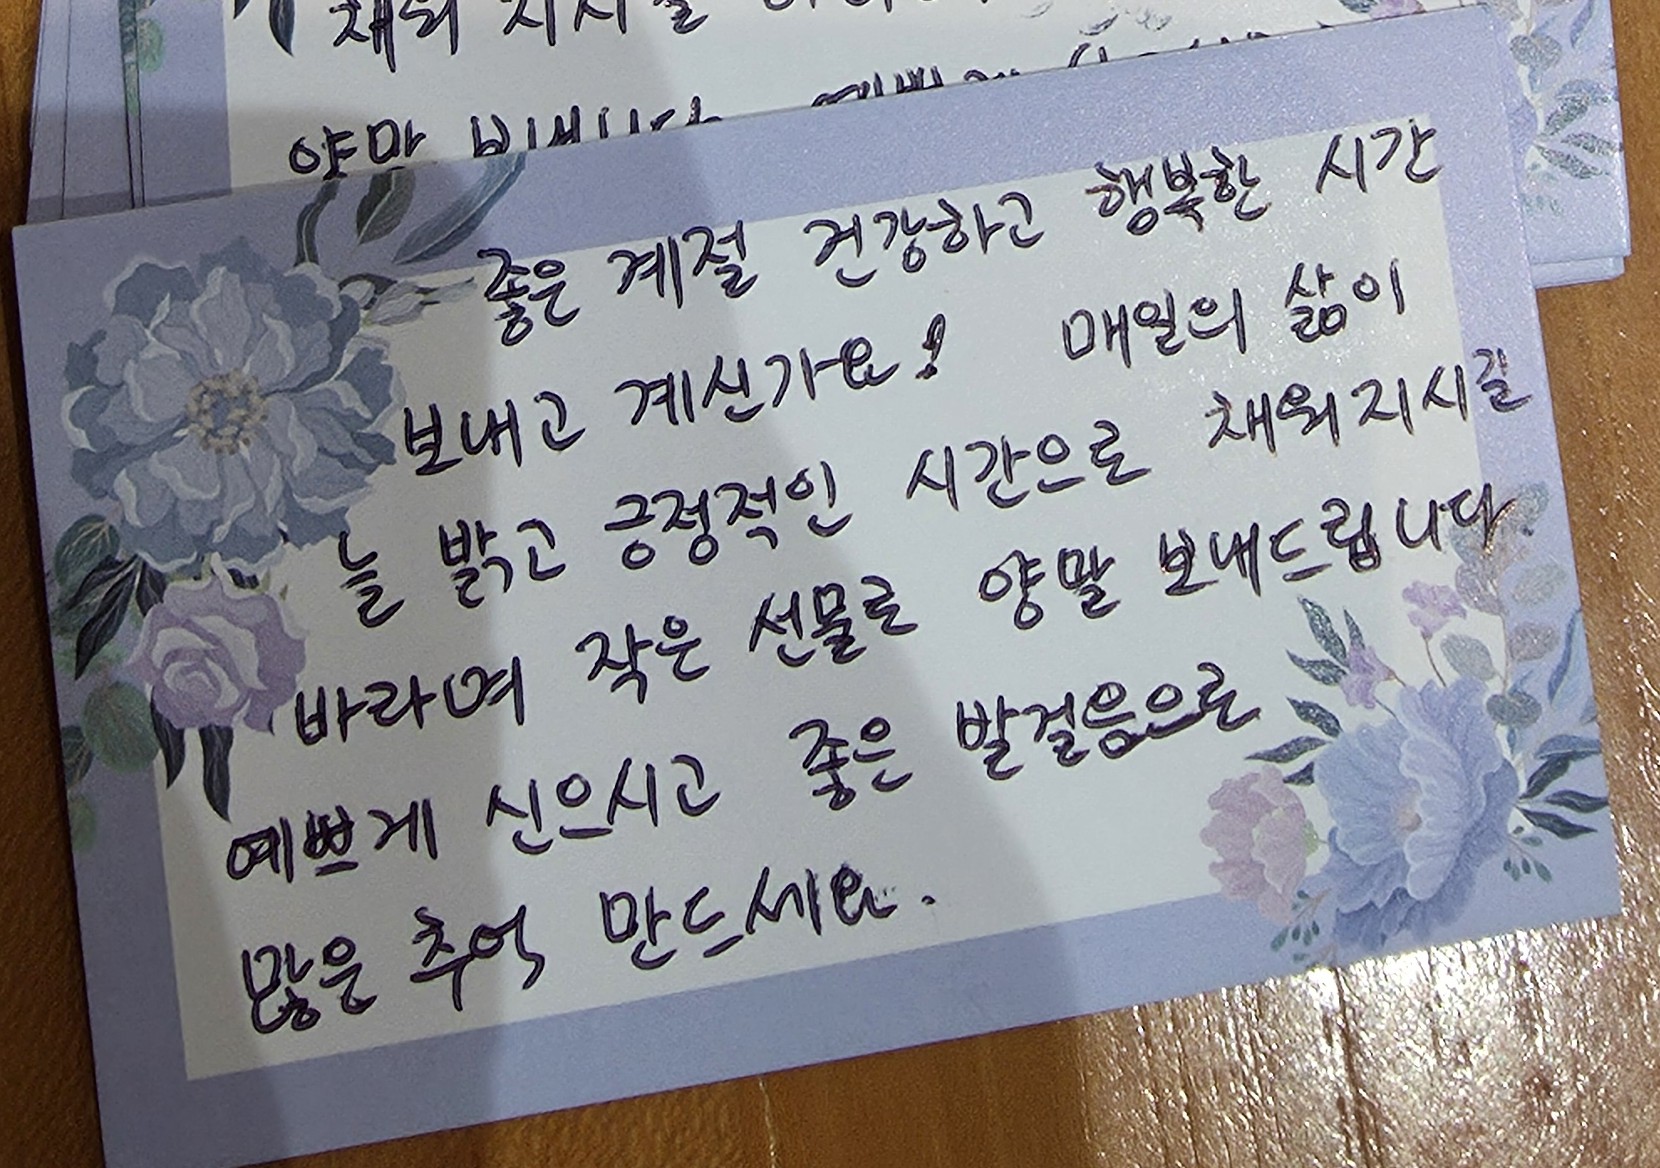 채워 지시길
양말 보내
좋은 계절 건강하고 행복한 시간
보내고 계신가요! 매일의 삶이
늘 밝고 긍정적인 시간으로 채워지시길
바라며 작은 선물로 양말 보내드립니다.
예쁘게 신으시고 좋은 발걸음으로
많은 추억 만드세요.